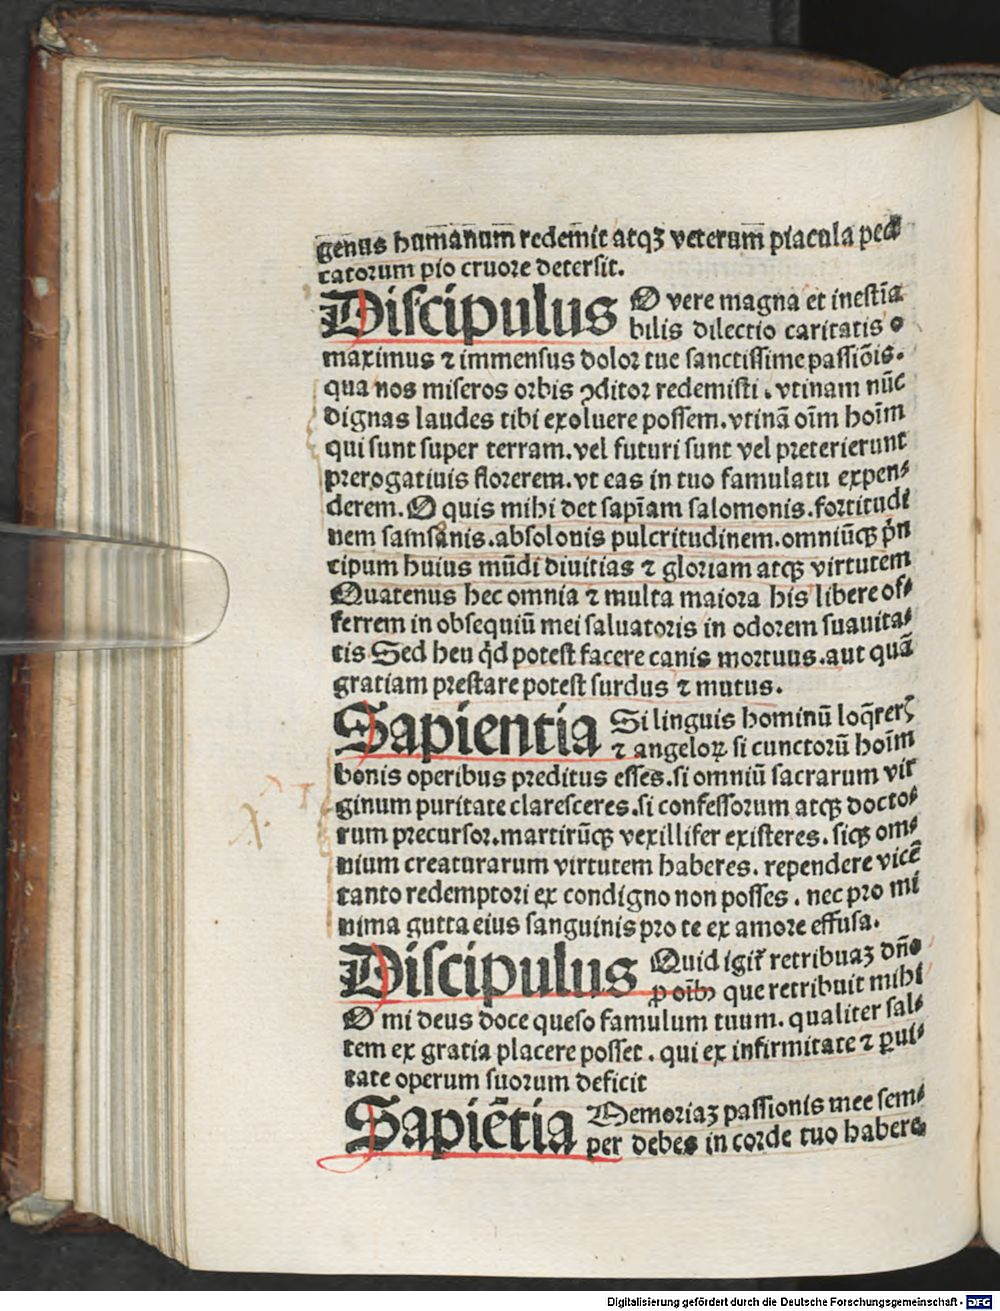 genus humanum redemit atqꝫ veterum piacula pec
catorum pio cruore detersit.
Discipulus O vere magna et inestīa
bilis dilectio caritatis o
maximus ⁊ immensus dolor tue sanctissime passiōis.
qua nos miseros orbis ꝯditor redemisti. vtinam nūc
dignas laudes tibi exoluere possem. vtinā oīm hoīm
qui sunt super terram. vel futuri sunt vel preterierunt
prerogatiuis florerem. vt eas in tuo famulatu expen⸗
derem. O quis mihi det sapīam salomonis. fortitudi
nem samsonis. absolonis pulcritudinem. omniūqꝫ prin
cipum huius mūdi diuitias ⁊ gloriam atqꝫ virtutem
Quatenus hec omnia ⁊ multa maiora his libere of⸗
ferrem in obsequiū mei saluatoris in odorem suauita⸗
tis Sed heu qͥd potest facere canis mortuus. aut quā
gratiam prestare potest surdus ⁊ mutus.
Sapientia Si linguis hominū loq̄rerꝭ
⁊ angeloꝝ si cunctorū hoīm
bonis operibus preditus esses. si omniū sacrarum vir
ginum puritate claresceres. si confessorum atqꝫ docto⸗
rum precursor. martirūqꝫ vexillifer existeres. sicqꝫ om⸗
nium creaturarum virtutem haberes. rependere vicē
tanto redemptori ex condigno non posses. nec pro mi
nima gutta eius sanguinis pro te ex amore effusa.
Discipulus Quid igit̄ retribuaꝫ dn̄o
ꝓ oībꝰ que retribuit mihi
O mi deus doce queso famulum tuum. qualiter sal⸗
tem ex gratia placere posset. qui ex infirmitate ⁊ ꝑui⸗
tate operum suorum deficit
Sapiētia Memoriaꝫ passionis mee sem⸗
per debes in corde tuo habere.
Digitalisierung gefördert durch die Deutsche Forschungsgemeinschaft - DFG